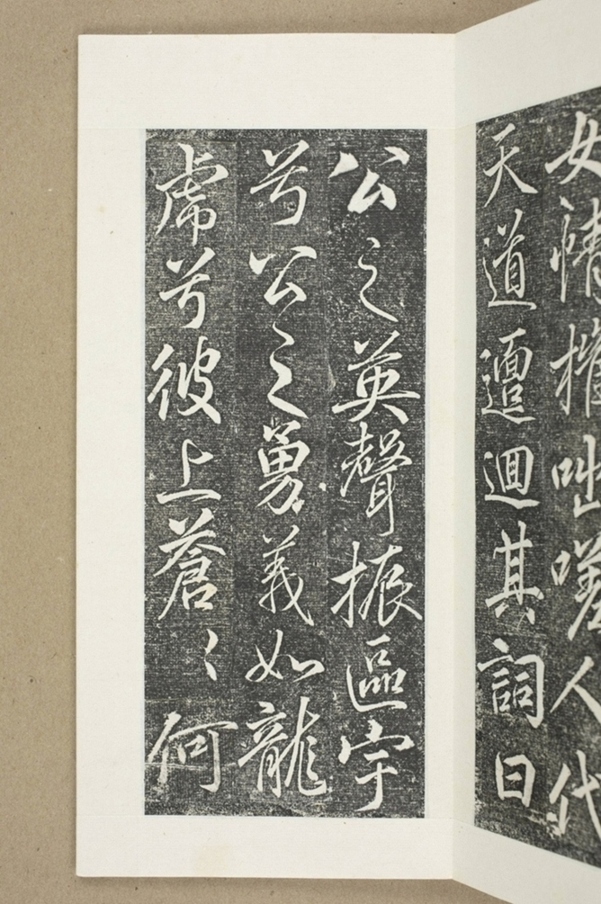 女情摧咄嗟人代
天道邅迴其詞曰
公之英聲振區宇
兮公之勇義如龍
虎兮彼上蒼〻何